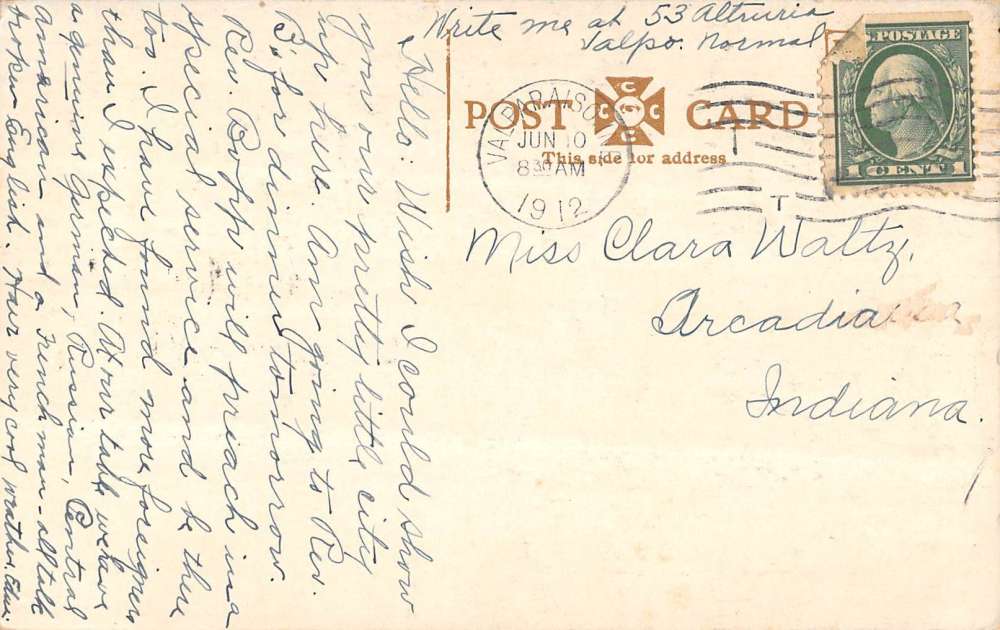 Write me at 53 Altruria
Valpo. Normal
POST CARD
This side for address
VALPARAISO
JUN 10
830 AM
1912
S. POSTAGE
1 CENT 1
Miss Clara Waltz,
Arcadia
Indiana.
Hello: Wish I could show
you our pretty little city
up here. Am going to Rev.
B's for dinner tomorrow.
Rev. Bopp will preach in a
special service and be there
too. I have found more foreigners
than I expected. At our table we have
a genuine German, Russian, Central
American and a Frenchman - all talk
broken English. Have very cool weather.